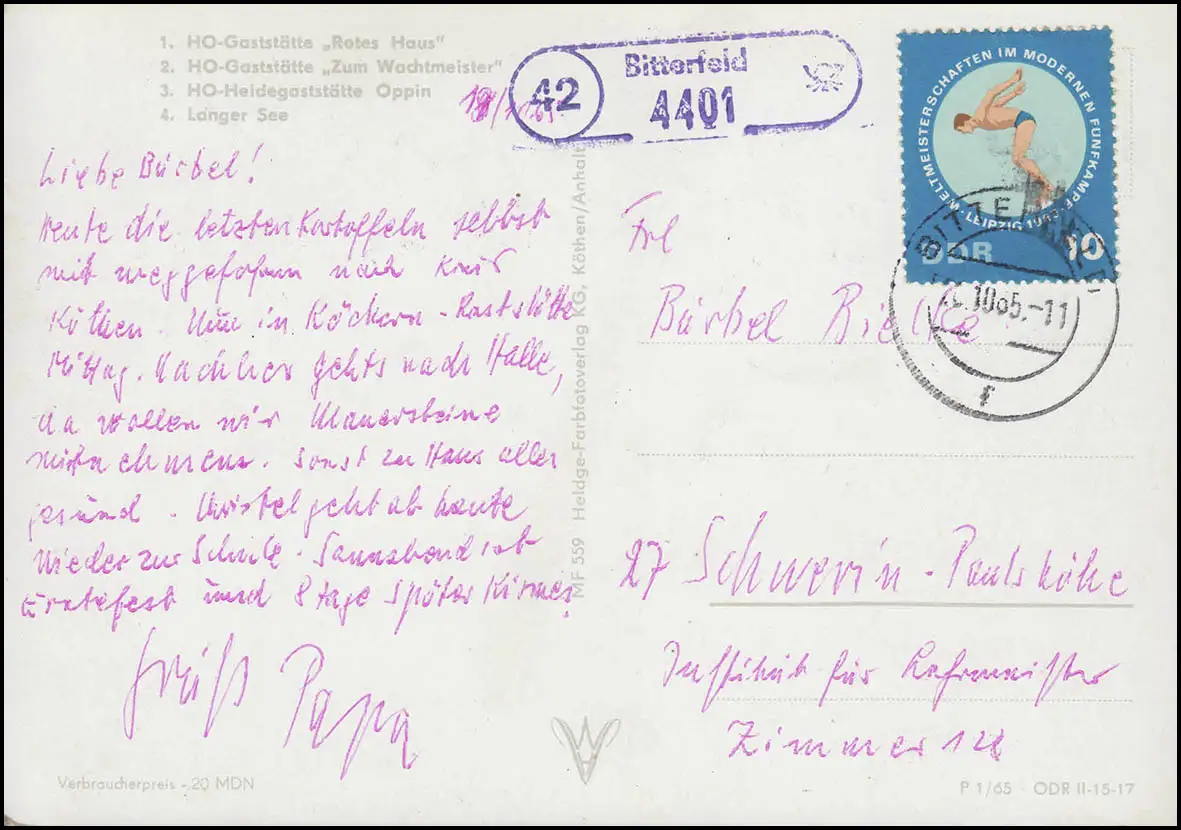 1. HO-Gaststätte „Rotes Haus"
2. HO-Gaststätte „Zum Wachtmeister"
3. HO-Heidegaststätte Oppin
4. Langer See
42
Bitterfeld
4401
WELTMEISTERSCHAFTEN IM MODERNEN FÜNFKAMPF
LEIPZIG 1965
DDR 10
BITTERFELD
10.65.-11
r
Liebe Bärbel!
Heute die letzten Kartoffeln selbst
mit weggefahren nach
Köthen. Nun in Köckern - Raststätte
Mittag. Nachher gehts nach Halle,
da wollen wir Mauersteine
mitnehmen. Sonst zu Haus alles
gesund. Christel geht ab heute
wieder zur Schule. Sonnabend ist
Erntefest und 8 Tage später Kirmes.
Gruß Papa
MF 559 Heldge-Farbfotoverlag KG, Köthen/Anhalt
Frl
Bärbel
27 Schwerin-Paulshöhe
Institut für Lehrmeister
Zimmer
Verbraucherpreis -,20 MDN
P 1/65 ODR II-15-17